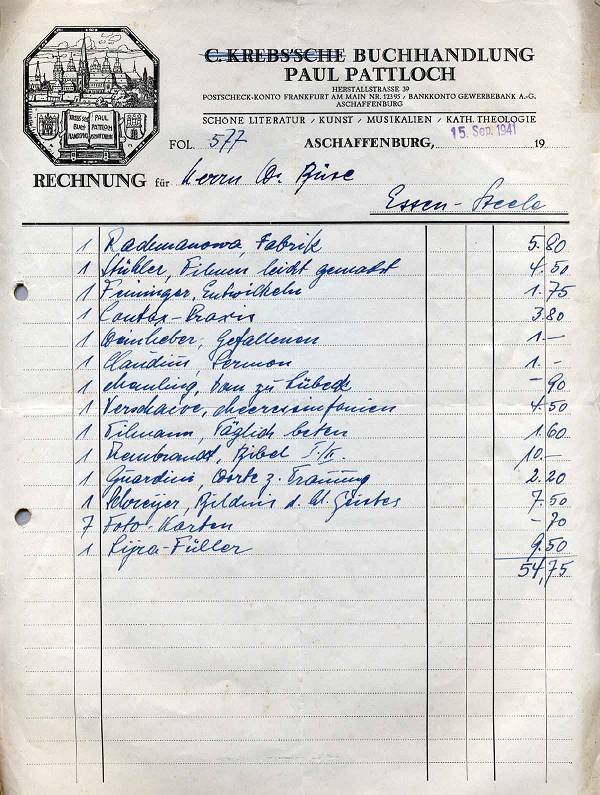 KREBS'SCHE BUCHHANDLUNG PAUL PATTLOCH ASCHAFFENBG
C. KREBS'SCHE BUCHHANDLUNG
PAUL PATTLOCH
HERSTALLSTRASSE 39
POSTSCHECK-KONTO FRANKFURT AM MAIN NR. 12395 / BANKKONTO GEWERBEBANK A.-G.
ASCHAFFENBURG
SCHÖNE LITERATUR / KUNST / MUSIKALIEN / KATH. THEOLOGIE
FOL. 577 ASCHAFFENBURG, 15. Sep. 1941 19
RECHNUNG für Herrn Dr.
Essen-Steele
1 Rachmanowa, Fabrik 5.80
1 Stühler, Filmen leicht gemacht 4.50
1 Feininger, Entwickeln 1.75
1 Contax-Praxis 3.80
1 Gefallenen 1.—
1 Claudius, Sermon 1.—
1 Dom zu Lübeck —90
1 Verschaeve, Meeressinfonien 4.50
1 Tilmann, Täglich beten 1.60
1 Rembrandt, Bibel I./II. 10.—
1 Guardini, Worte z. Trauung 2.20
1 Schreyer, Bildnis d. hl. Geistes 7.50
7 Foto-Karten —70
1 Füller 9.50
54,75